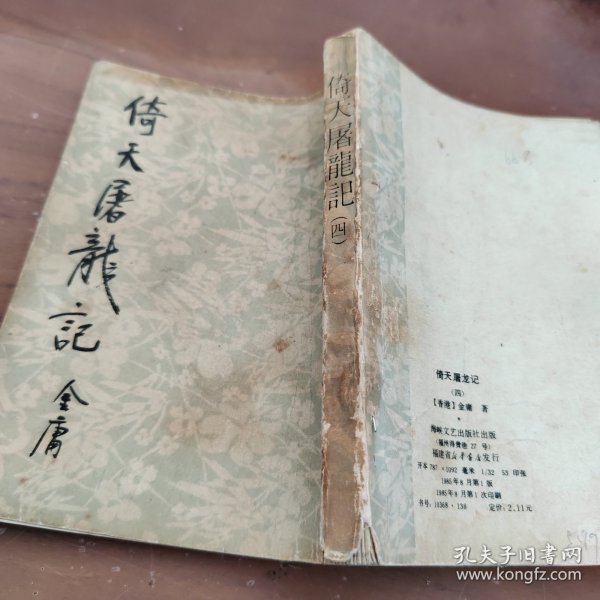 倚天屠龍記
金庸
倚天屠龍記(四)
倚天屠龙记
(四)
【香港】金庸 著
海峡文艺出版社出版
(福州得贵巷 27 号)
福建省新华书店发行
开本 787×1092 毫米 1/32 53 印张
1985年8月第1版
1985年8月第1次印刷
书号:10368·138 定价:2.11元
孔夫子旧书网
www.kongfz.com